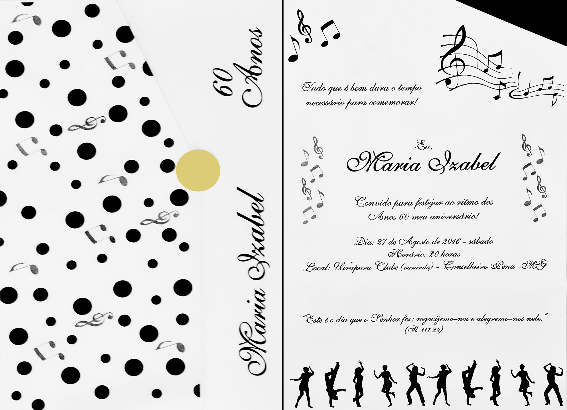 60
Anos
Maria Izabel
Tudo que é bom dura o tempo
necessário para comemorar!
Eu,
Maria Izabel
Convido para festejar ao ritmo dos
Anos 60 meu aniversário!
Dia: 27 de Agosto de 2016 - sábado
Horário: 20 horas
Local: Uirapuru Clube (varanda) - Conselheiro Pena - MG
"Este é o dia que o Senhor fez; regozijemo-nos e alegremo-nos nele."